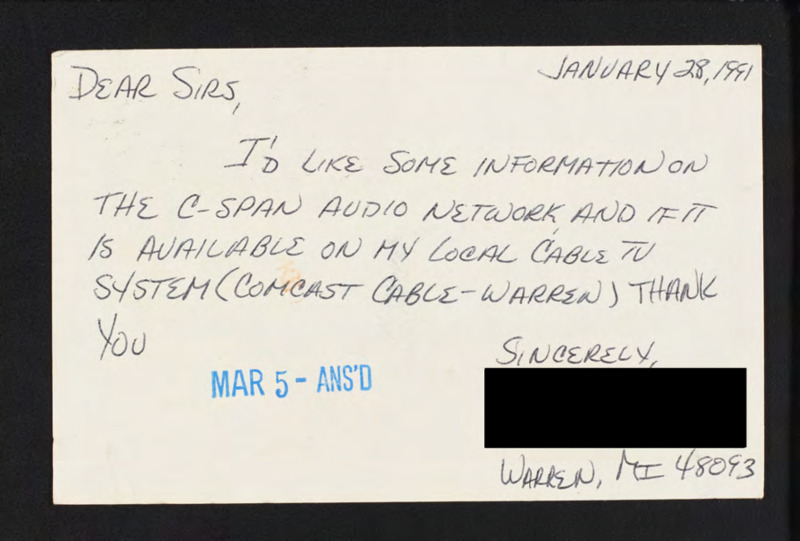 JANUARY 28, 1991
DEAR SIRS,
I'D LIKE SOME INFORMATION ON
THE C-SPAN AUDIO NETWORK, AND IF IT
IS AVAILABLE ON MY LOCAL CABLE TV
SYSTEM (COMCAST CABLE-WARREN) THANK
YOU
SINCERELY,
MAR 5 - ANS'D
WARREN, MI 48093